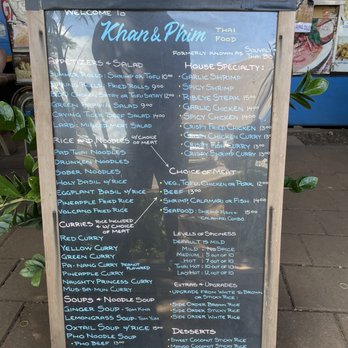 WELCOME TO
Khan & Phim THAI FOOD
FORMERLY KNOWN AS SOUVALY THAI BO
APPETIZERS & SALAD
SUMMER ROLLS: SHRIMP OR TOFU 10.00
SPRING ROLLS FRIED ROLLS 9.00
SATAY OR TOFU SATAY 12.00
GREEN PAPAYA SALAD 9.00
CRYING TIGER BEEF SALAD
LARB: MINCED MEAT SALAD
RICE AND NOODLES W/CHOICE OF MEAT
PAD THAI NOODLES
DRUNKEN NOODLES
SOBER NOODLES
HOLY BASIL W/RICE
EGGPLANT BASIL W/RICE
PINEAPPLE FRIED RICE
VOLCANO FRIED RICE
CURRIES RICE INCLUDED W/CHOICE OF MEAT
RED CURRY
YELLOW CURRY
GREEN CURRY
PA-NANG CURRY PEANUT FLAVORED
PINEAPPLE CURRY
NAUGHTY PRINCESS CURRY
MUS-SA-MUN CURRY
SOUPS & NOODLE SOUP
GINGER SOUP - TOM KHA
LEMONGRASS SOUP - TOM YUM
OXTAIL SOUP W/RICE
PHO NOODLE SOUP
- PHO BEEF
HOUSE SPECIALTY:
GARLIC SHRIMP
SPICY SHRIMP
RIBEYE STEAK
GARLIC CHICKEN
SPICY CHICKEN
CRISPY FRIED CHICKEN
CRISPY CHICKEN CURRY
CRISPY FISH CURRY
CRISPY SHRIMP CURRY
CHOICE OF MEAT
VEG, TOFU, CHICKEN OR PORK 12
BEEF 13.00
SHRIMP, CALAMARI OR FISH 14.00
SEAFOOD: SHRIMP FISH & CALAMARI COMBO 15.00
LEVELS OF SPICINESS
DEFAULT IS MILD
MILD : NO SPICE
MEDIUM
HOT
THAI HOT
LAO HOT
EXTRAS & UPGRADES
UPGRADE FROM WHITE TO BROWN OR STICKY RICE
SIDE ORDER BROWN/STICKY RICE
SIDE ORDER WHITE RICE
DESSERTS
SWEET COCONUT STICKY RICE
MANGO COCONUT STICKY RICE